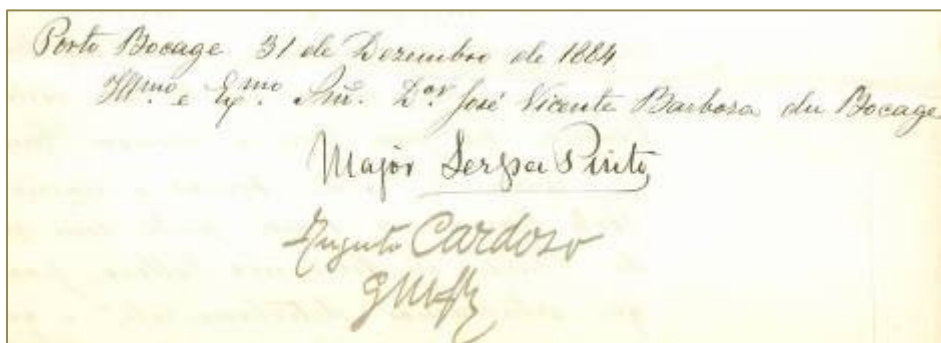 Porto Bocage 31 de Dezembro de 1884
Illmo. e Exmo. Snr. Dor José Vicente Barboza du Bocage
Major Serpa Pinto
Augusto Cardoso